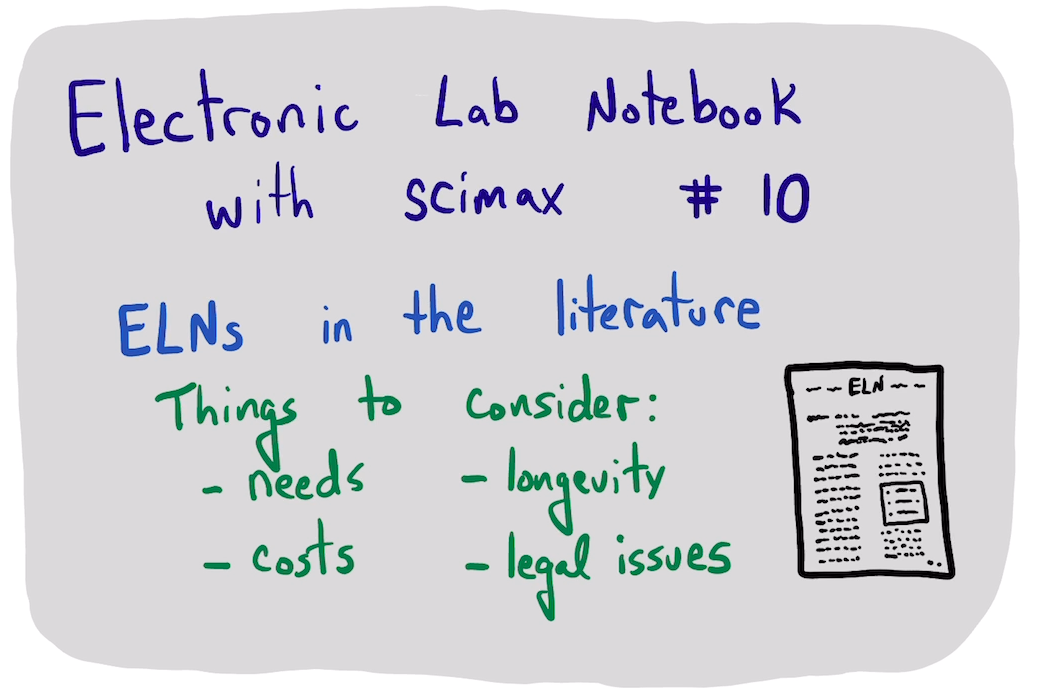 Electronic Lab Notebook
with scimax # 10
ELNs in the literature
Things to consider:
- needs - longevity
- costs - legal issues
ELN